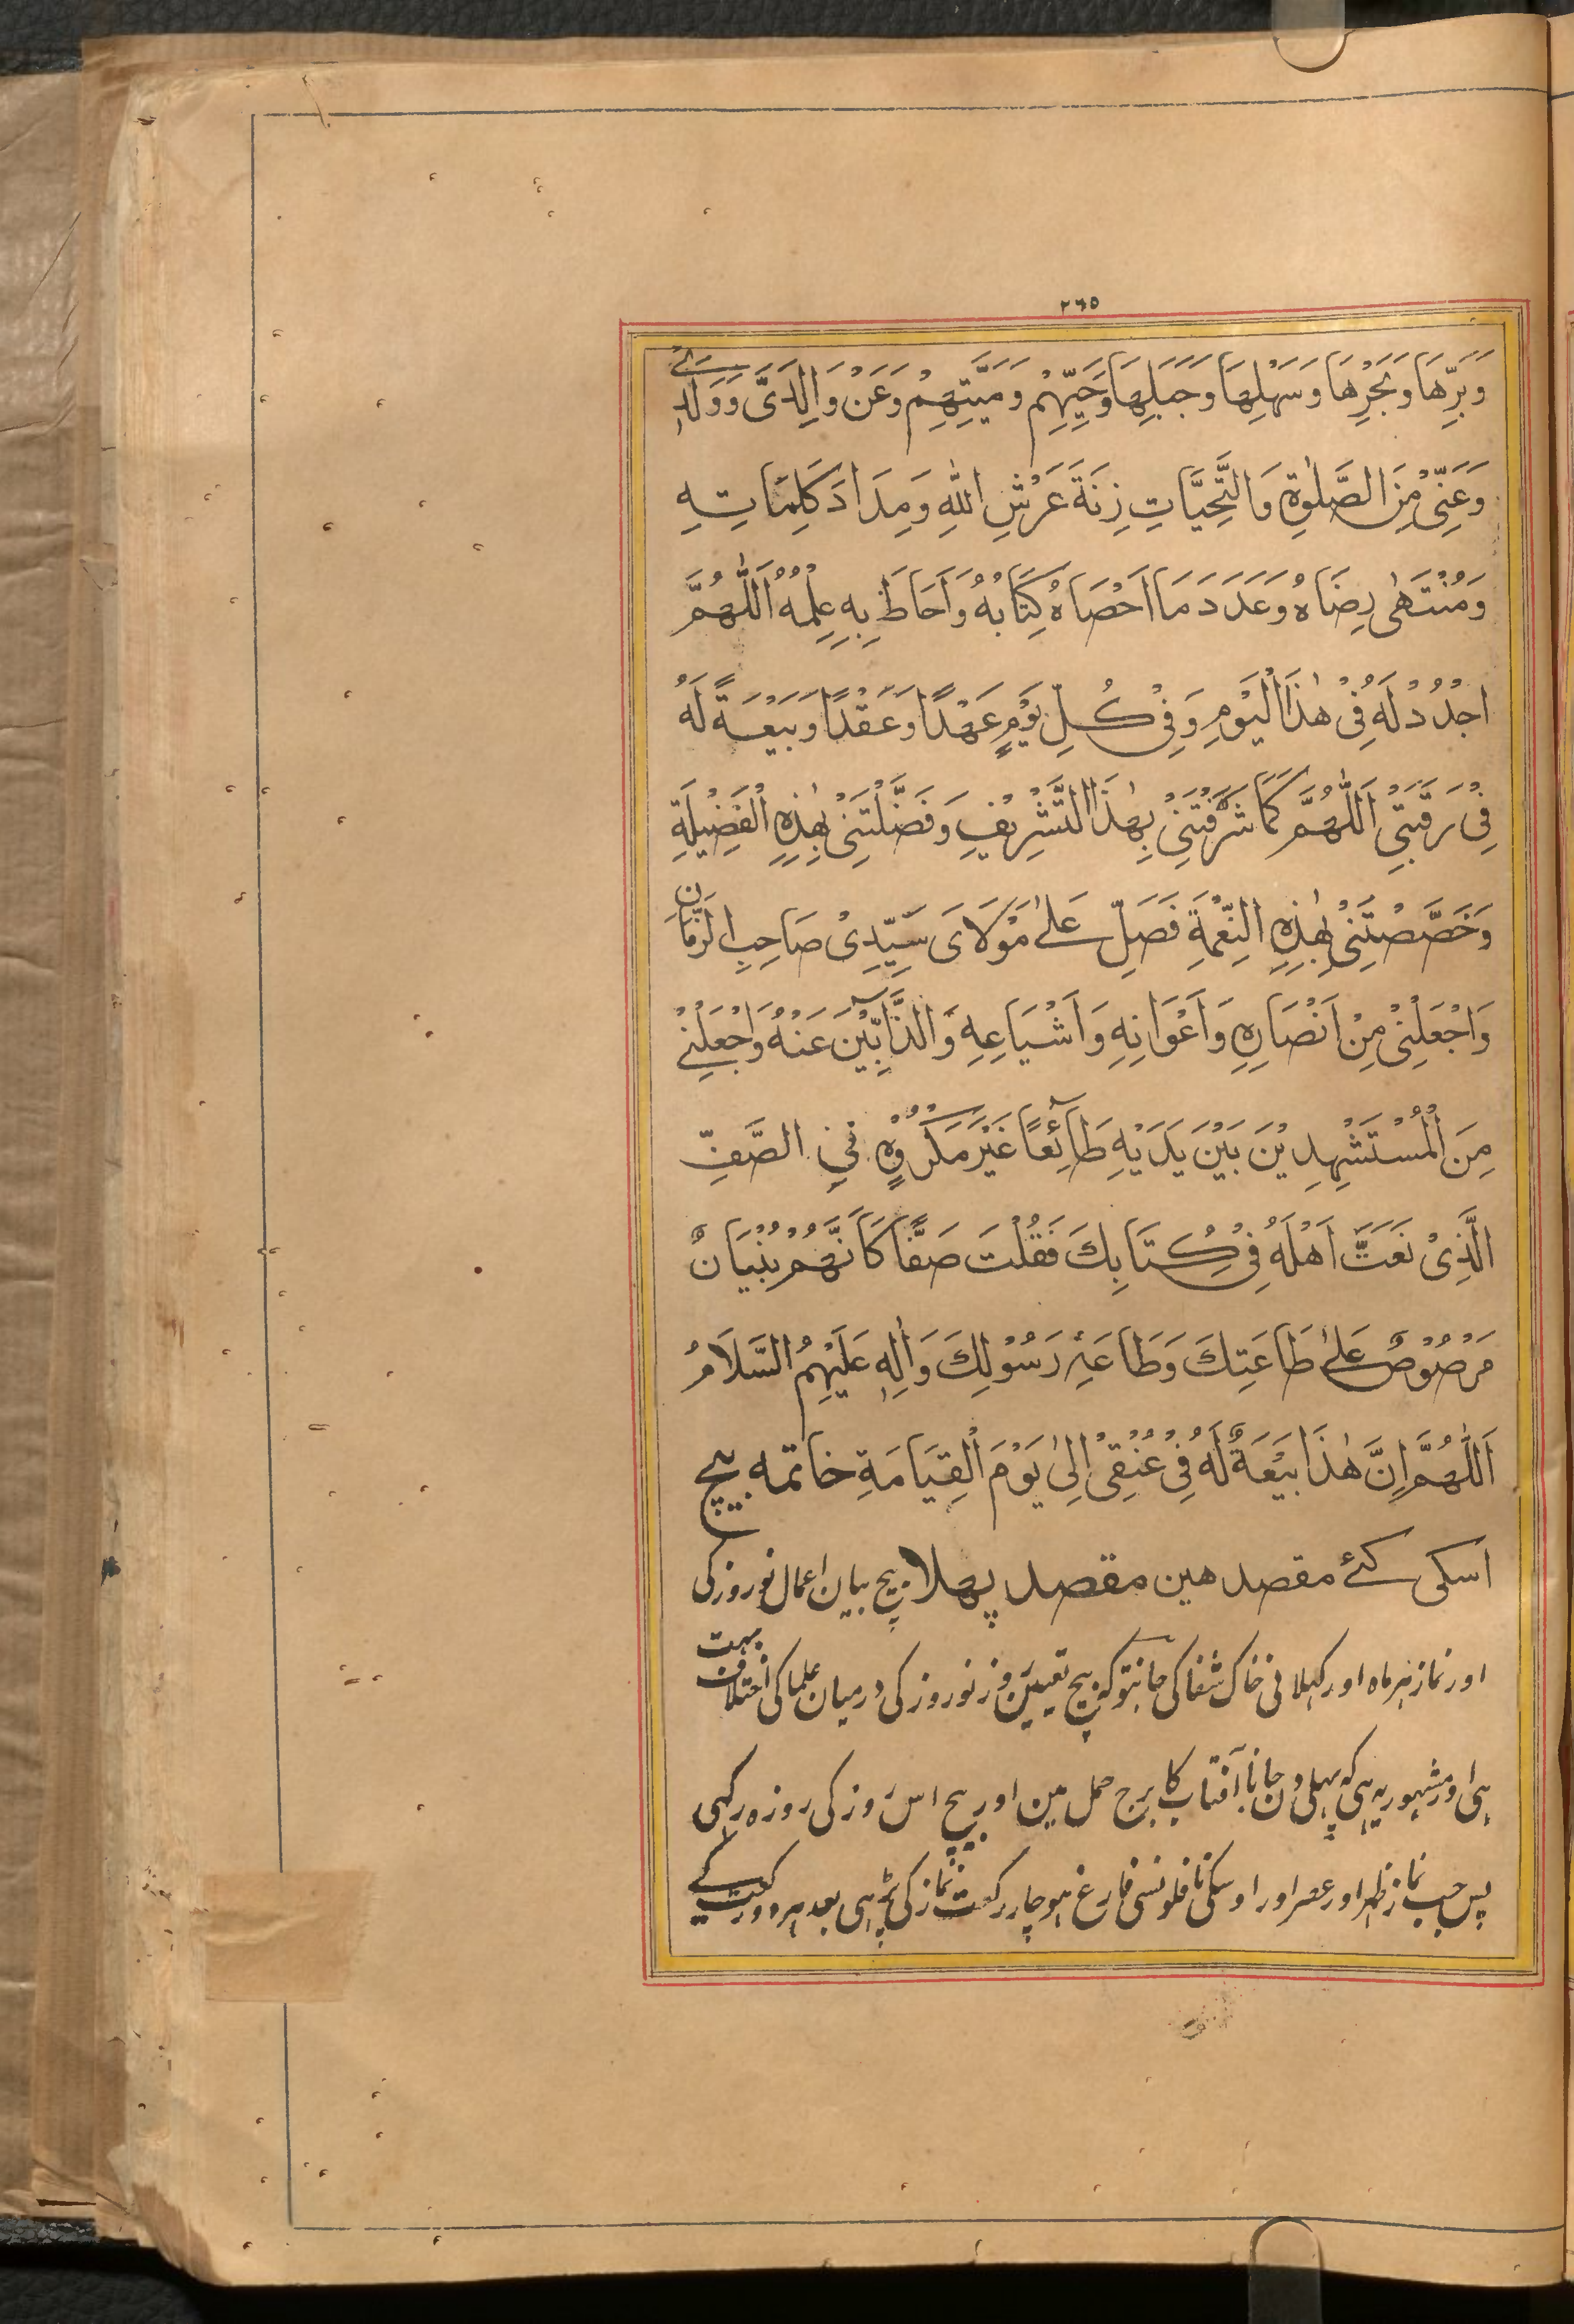 ٢٦٥
وَبَرِّهَا وَبَحْرِهَا وَسَهْلِهَا وَجَبَلِهَا وَحَيِّهِمْ وَمَيِّتِهِمْ وَعَنْ وَالِدَیَّ وَوَلَدِیْ
وَعَنِّیْ مِنَ الصَّلٰوةِ وَالتَّحِيَّاتِ زِنَةَ عَرْشِ اللّٰهِ وَمِدَادَ كَلِمَاتِهِ
وَمُنْتَهٰی رِضَاهُ وَعَدَدَ مَا اَحْصَاهُ كِتَابُهُ وَاَحَاطَ بِهِ عِلْمُهُ اَللّٰهُمَّ
اجُدُدْ لَهُ فِیْ هٰذَا الْيَوْمِ وَفِیْ كُلِّ يَوْمٍ عَهْدًا وَعَقْدًا وَبَيْعَةً لَهُ
فِیْ رَقَبَتِیْ اَللّٰهُمَّ كَمَا شَرَّفْتَنِیْ بِهٰذَا التَّشْرِيْفِ وَفَضَّلْتَنِیْ بِهٰذِهِ الْفَضِيْلَةِ
وَخَصَّصْتَنِیْ بِهٰذِهِ النِّعْمَةِ فَصَلِّ عَلٰی مَوْلَایَ سَيِّدِیْ صَاحِبِ الزَّمَانِ
وَاجْعَلْنِیْ مِنْ اَنْصَارِهِ وَاَعْوَانِهِ وَاَشْيَاعِهِ وَالذَّآبِّيْنَ عَنْهُ وَاجْعَلْنِیْ
مِنَ الْمُسْتَشْهِدِيْنَ بَيْنَ يَدَيْهِ طَآئِعًا غَيْرَ مَكْرُوْهٍ فِی الصَّفِّ
الَّذِیْ نَعَتَّ اَهْلَهُ فِیْ كِتَابِكَ فَقُلْتَ صَفًّا كَاَنَّهُمْ بُنْيَانٌ
مَرْصُوْصٌ عَلٰی طَاعَتِكَ وَطَاعَةِ رَسُوْلِكَ وَاٰلِهِ عَلَيْهِمُ السَّلَامُ
اَللّٰهُمَّ اِنَّ هٰذَا بَيْعَةٌ لَهُ فِیْ عُنُقِیْ اِلٰی يَوْمَ الْقِيَامَةِ خاتمه بیچ
اسکی کئے مقصد هین مقصد پهلا بیچ بیان اعمال نوروز کی
اور نماز ہر ماہ اور کہلانی خاک شفا کی جانتو کہ بیچ تعیین روز نوروز کی درمیان علما کی اختلاف بہت
ہی اور مشہور یہ ہی کہ پہلی دن جانا آفتاب کا برج حمل مین اور بیچ اس روز کی روزہ رکہی
پس جب نماز ظہر اور عصر اور اوسکی نافلونسی فارغ ہو چار رکعت نماز کی پڑہی بعد ہر دو رکعت کے